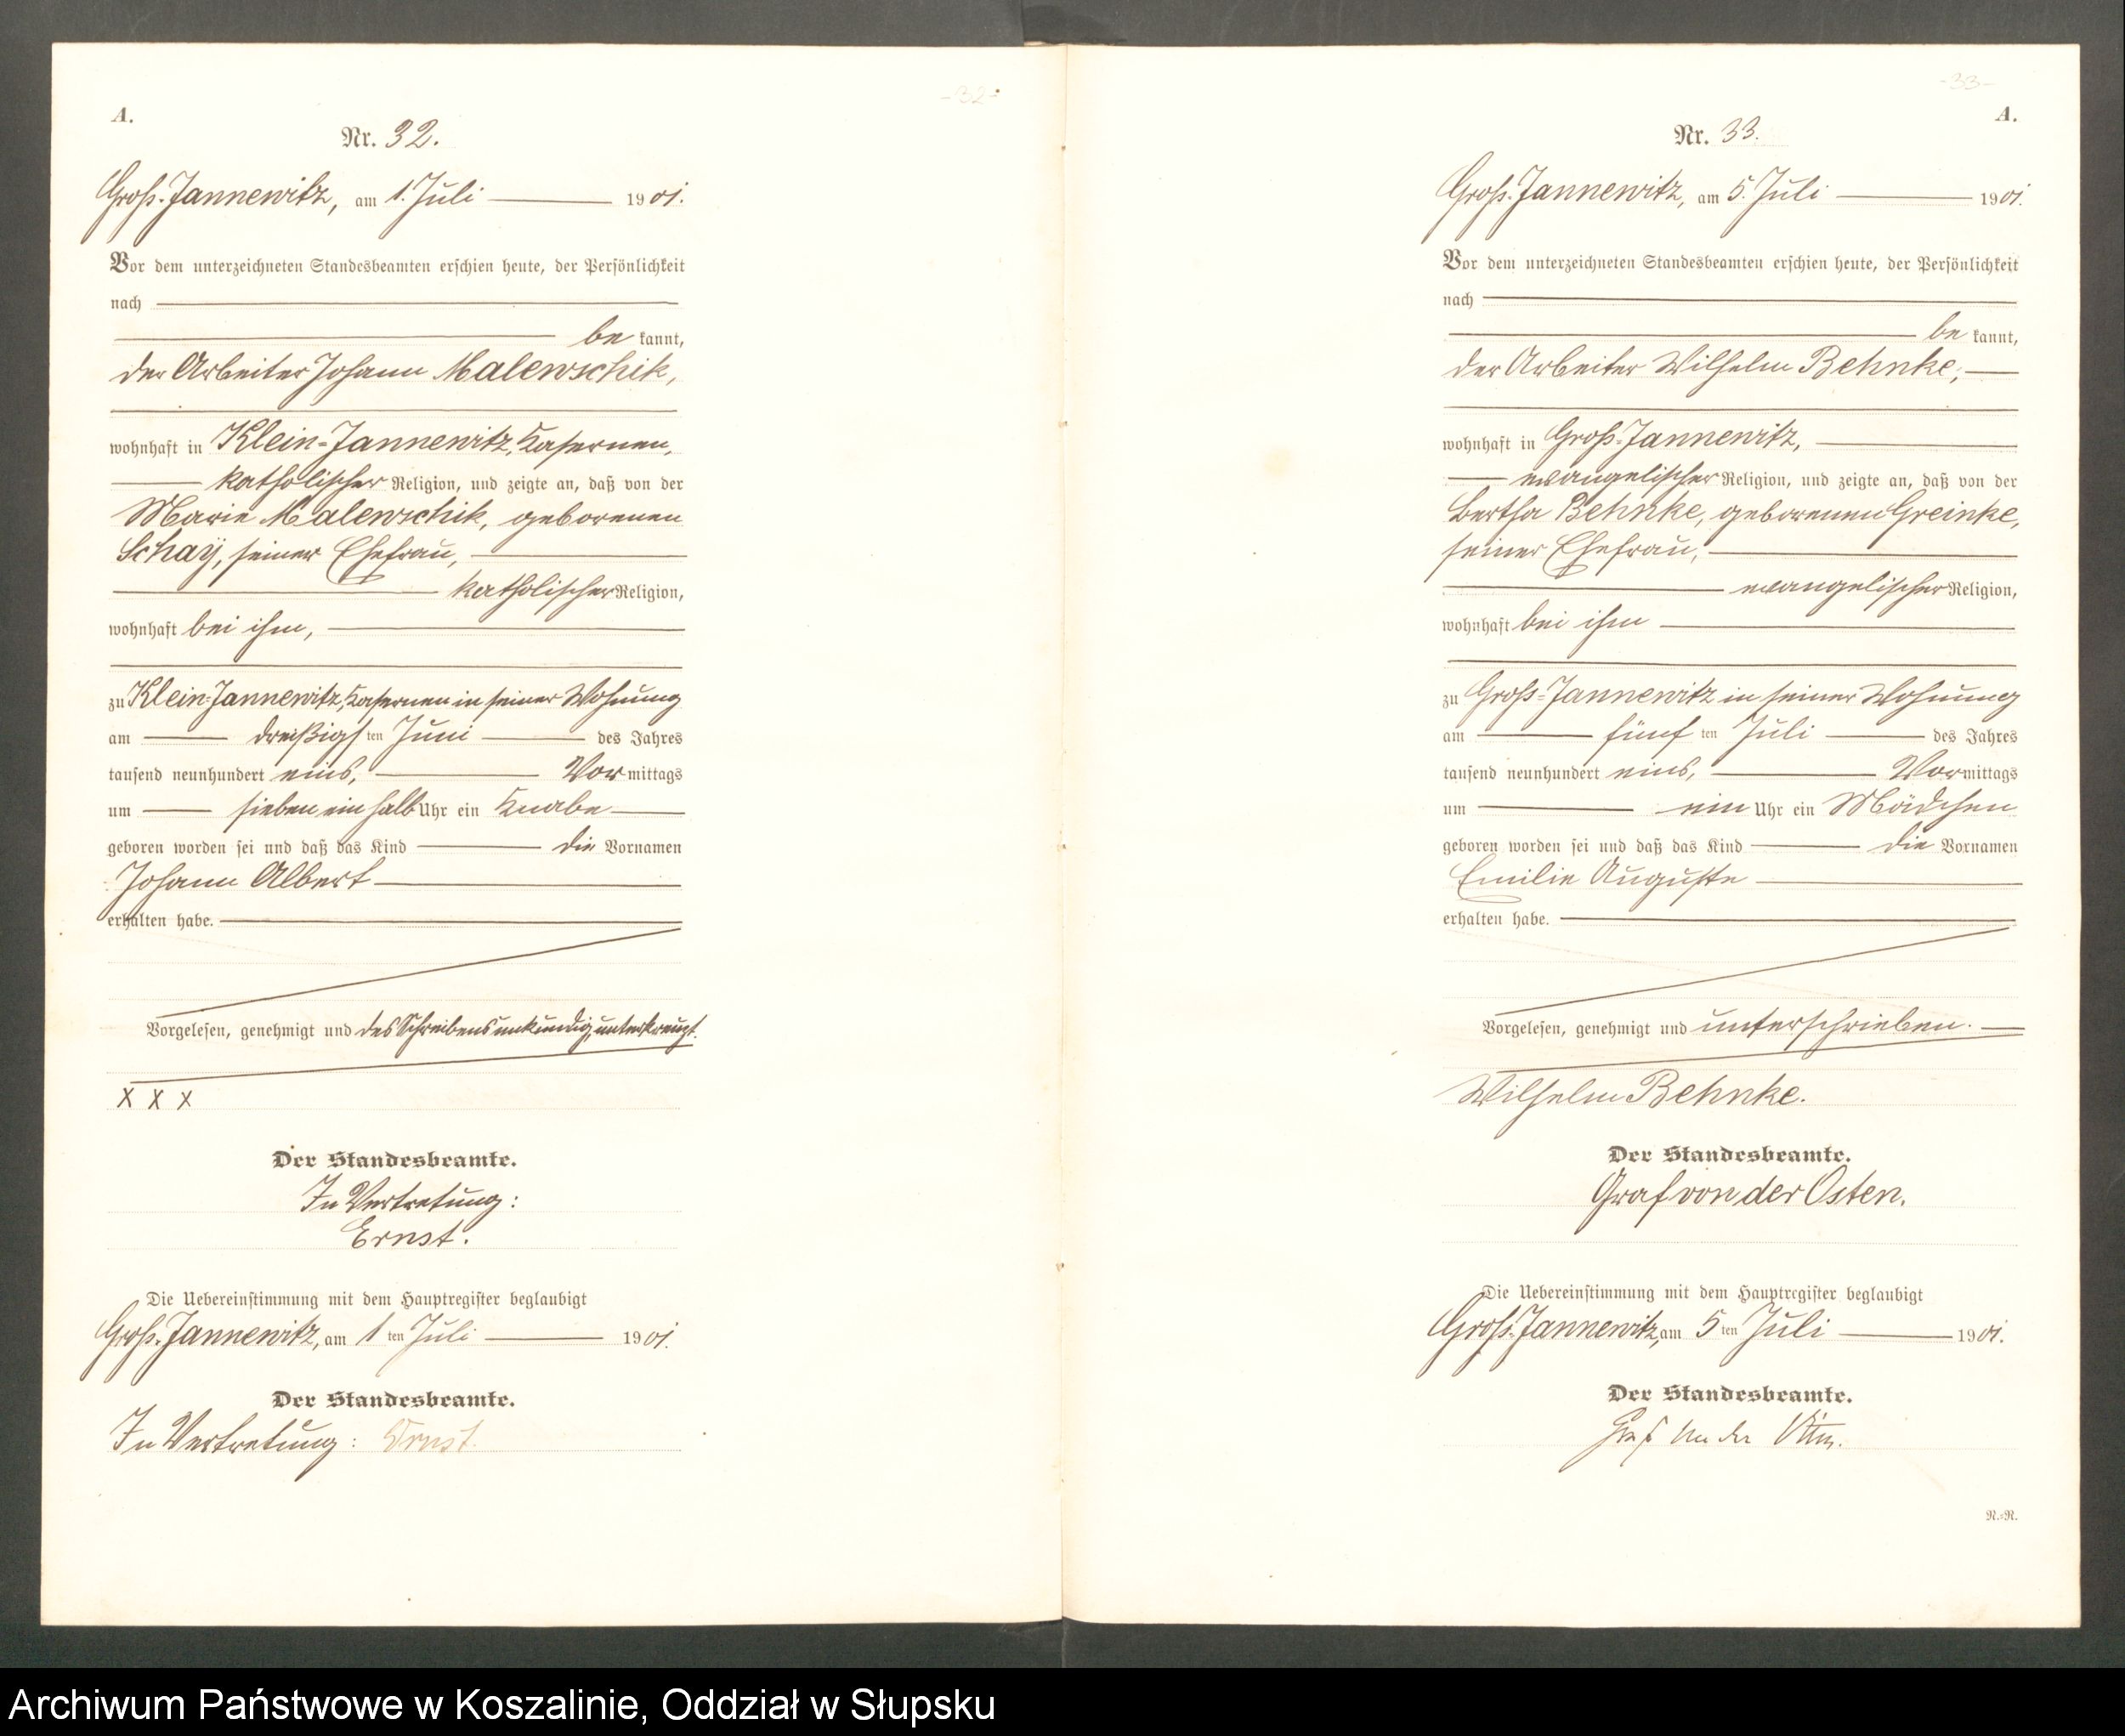 -32-
A.
Nr. 32.
Groß-Jannewitz, am 1. Juli 1901.
Vor dem unterzeichneten Standesbeamten erschien heute, der Persönlichkeit
nach
be kannt,
der Arbeiter Johann Malewschik,
wohnhaft in Klein-Jannewitz, Kasernen,
katholischer Religion, und zeigte an, daß von der
Marie Malewschik, geborenen
Schay, seiner Ehefrau,
katholischer Religion,
wohnhaft bei ihm,
zu Klein-Jannewitz, Kasernen in seiner Wohnung
am dreißigsten Juni des Jahres
tausend neunhundert eins, Vormittags
um sieben ein halb Uhr ein Knabe
geboren worden sei und daß das Kind die Vornamen
Johann Albert
erhalten habe.
Vorgelesen, genehmigt und des Schreibens unkundig, unterkreuzt.
x x x
Der Standesbeamte.
In Vertretung:
Ernst.
Die Uebereinstimmung mit dem Hauptregister beglaubigt
Groß-Jannewitz, am 1ten Juli 1901.
Der Standesbeamte.
In Vertretung: Ernst.
-33-
A.
Nr. 33.
Groß-Jannewitz, am 5. Juli 1901.
Vor dem unterzeichneten Standesbeamten erschien heute, der Persönlichkeit
nach
be kannt,
der Arbeiter Wilhelm Behnke,
wohnhaft in Groß-Jannewitz,
evangelischer Religion, und zeigte an, daß von der
Bertha Behnke, geborenen Greinke,
seiner Ehefrau,
evangelischer Religion,
wohnhaft bei ihm
zu Groß-Jannewitz in seiner Wohnung
am fünften Juli des Jahres
tausend neunhundert eins, Vormittags
um ein Uhr ein Mädchen
geboren worden sei und daß das Kind die Vornamen
Emilie Auguste
erhalten habe.
Vorgelesen, genehmigt und unterschrieben.
Wilhelm Behnke.
Der Standesbeamte.
Graf von der Osten.
Die Uebereinstimmung mit dem Hauptregister beglaubigt
Groß-Jannewitz, am 5ten Juli 1901.
Der Standesbeamte.
Graf von der Osten.
N.-R.
Archiwum Państwowe w Koszalinie, Oddział w Słupsku